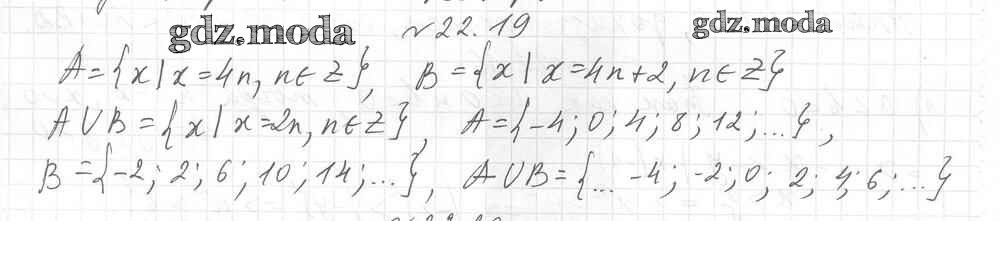 gdz.moda №22.19 gdz.moda
A={x|x=4n, n∈Z}, B={x|x=4n+2, n∈Z}
A∪B={x|x=2n, n∈Z}, A={-4; 0; 4; 8; 12; ...},
B={-2; 2; 6; 10; 14; ...}, A∪B={... -4; -2; 0; 2; 4; 6; ...}